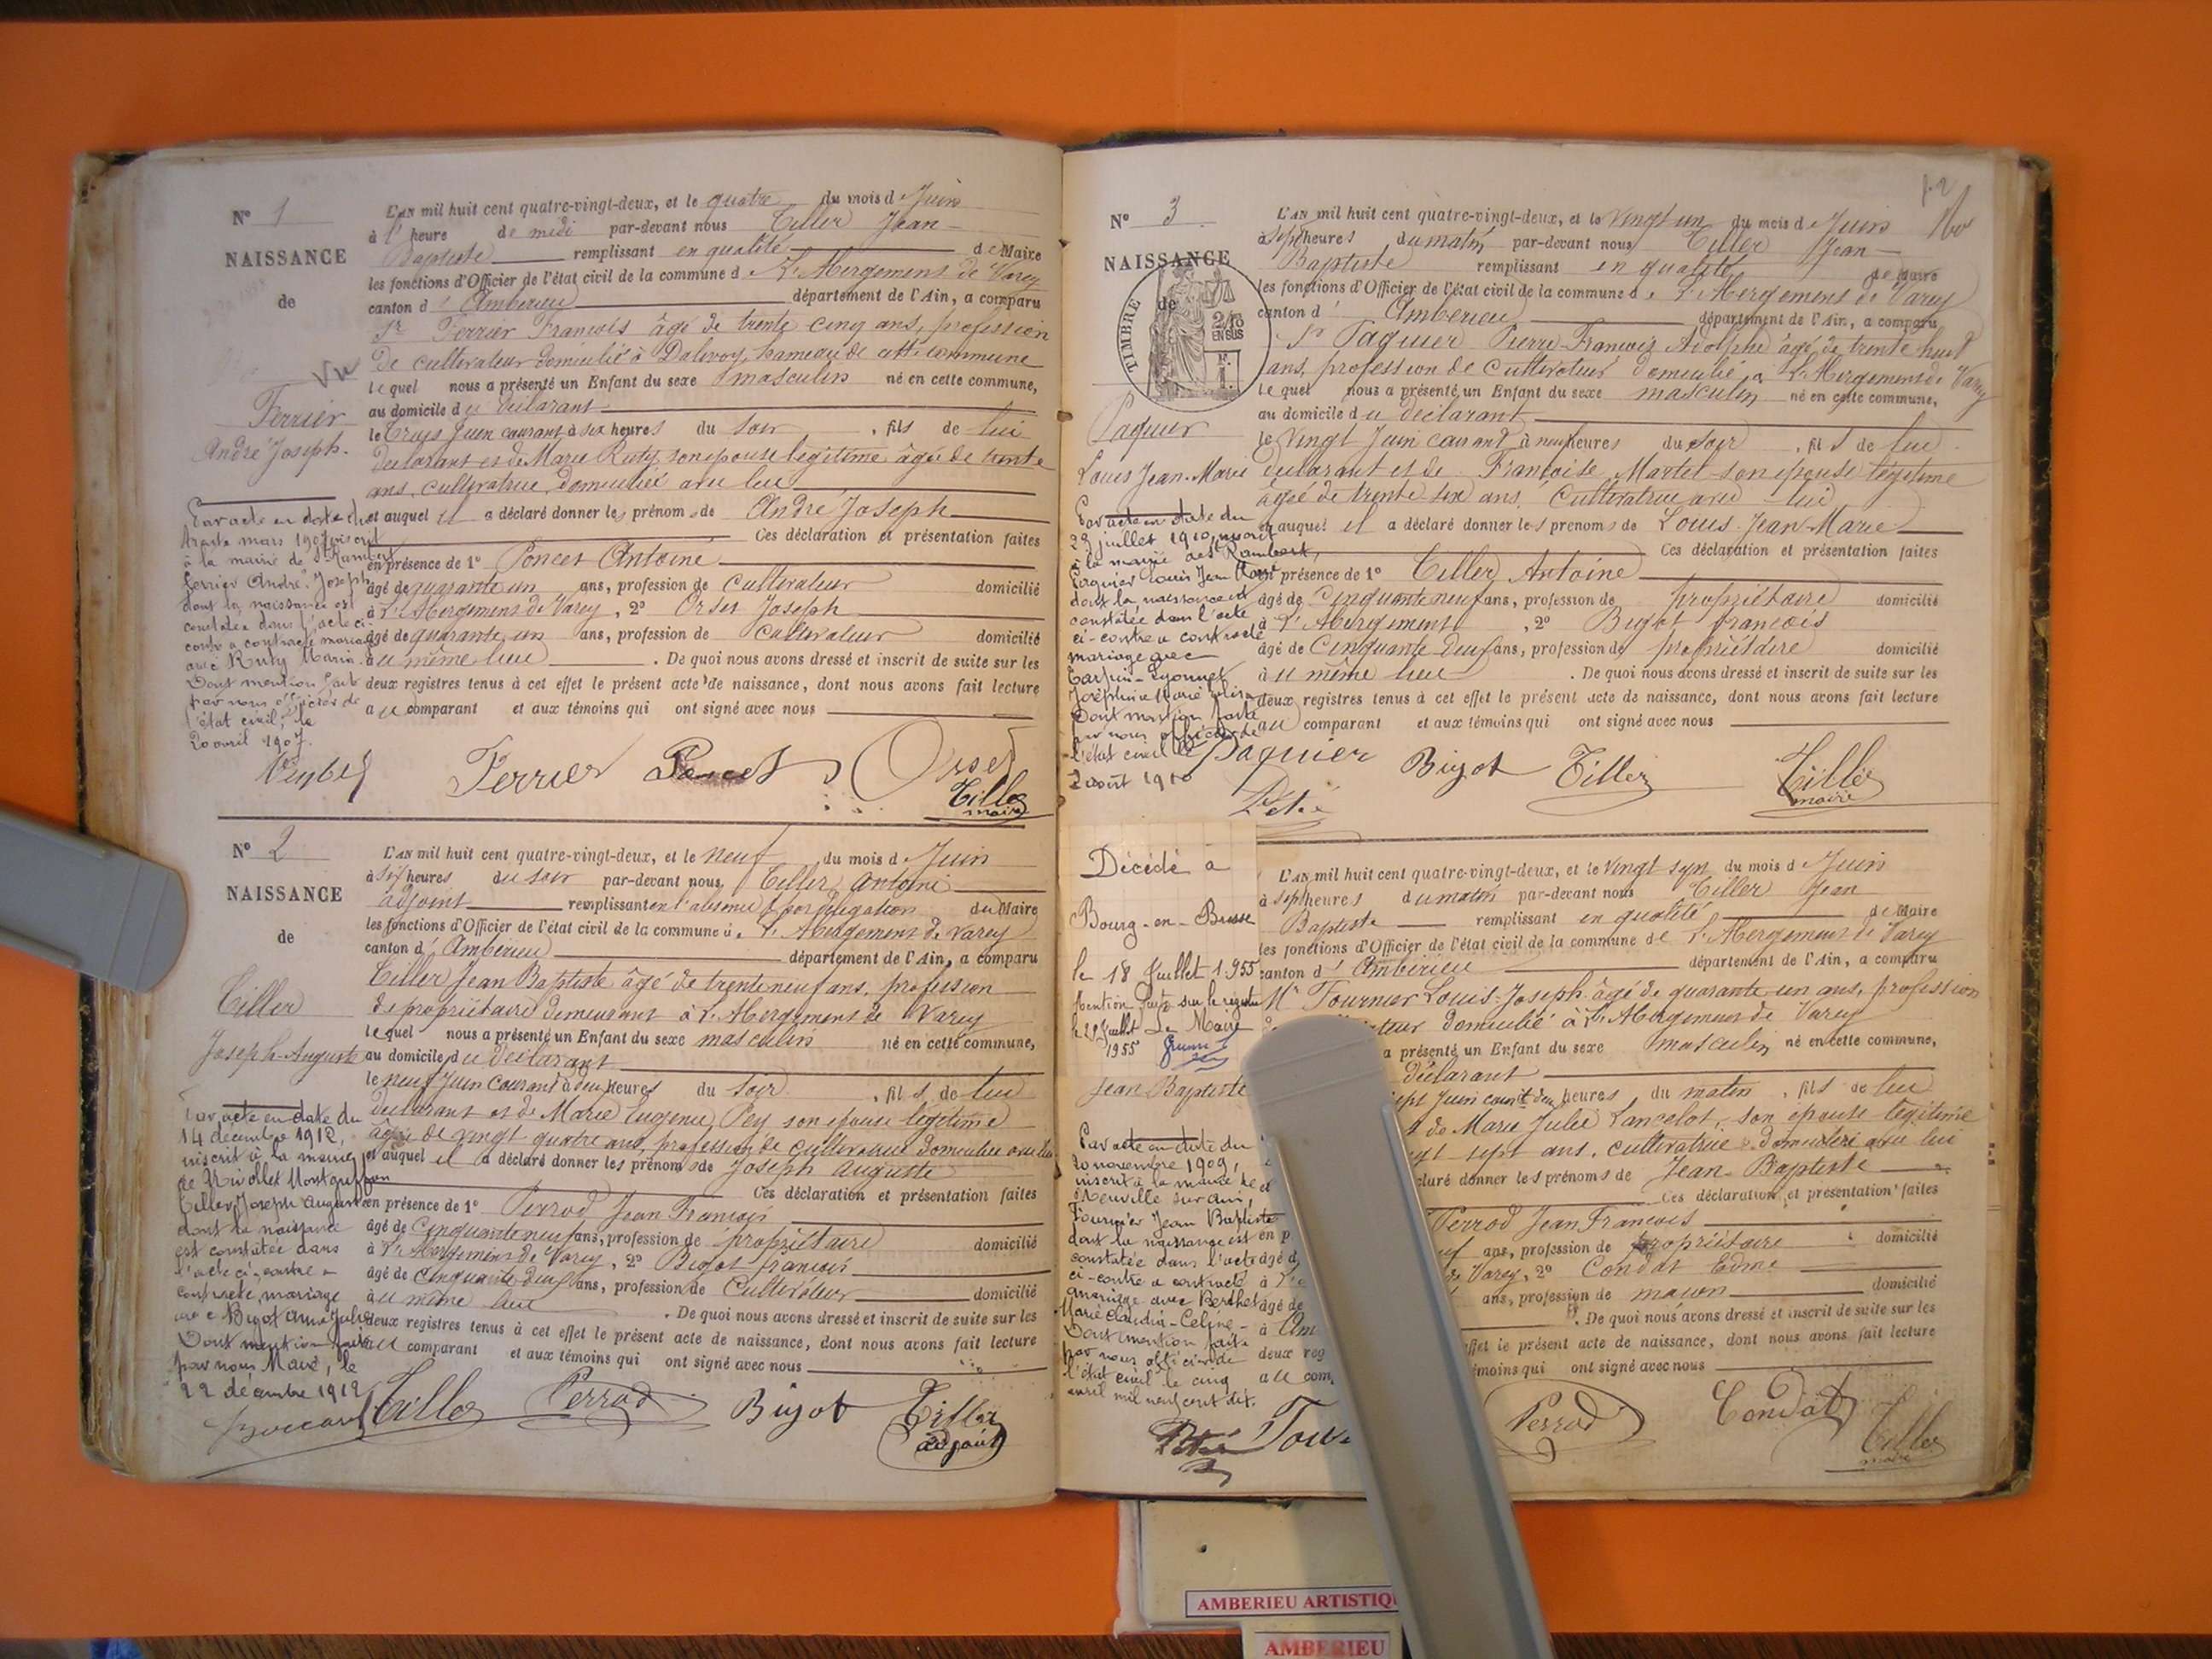 N° 1
NAISSANCE
de
Vu
Ferrier
André Joseph.
L'AN mil huit cent quatre-vingt-deux, et le quatre du mois d e Juin
à l' heure de midi par-devant nous Tiller Jean
Baptiste remplissant en qualité de Maire
les fonctions d'Officier de l'état civil de la commune d e L'Abergement de Varey
canton d' Ambérieu département de l'Ain, a comparu
Sr Ferrier François âgé de trente cinq ans, profession
de cultivateur domicilié à Dalivoy hameau de cette commune
lequel nous a présenté un Enfant du sexe masculin né en cette commune,
au domicile du déclarant
le trois Juin courant à six heures du soir , fils de lui
déclarant et de Marie Ruty son épouse légitime âgée de trente
ans, cultivatrice, domiciliée avec lui
et auquel il a déclaré donner les prénoms de André Joseph
Ces déclaration et présentation faites
en présence de 1° Poncet Antoine
âgé de quarante un ans, profession de cultivateur domicilié
à L'Abergement de Varey, 2° Orset Joseph
âgé de quarante un ans, profession de cultivateur domicilié
au même lieu . De quoi nous avons dressé et inscrit de suite sur les
deux registres tenus à cet effet le présent acte de naissance, dont nous avons fait lecture
au comparant et aux témoins qui ont signé avec nous
Par acte en date du
trente mars 1907 inscrit
à la mairie de St Rambert
Ferrier André Joseph
dont la naissance est
constatée dans l'acte ci-
contre a contracté mariage
avec Ruty Maria.
Dont mention faite
par nous officier de
l'état civil, le
20 avril 1907.
Ferrier Poncet Orset
Tiller
maire
N° 2
NAISSANCE
de
Tiller
Joseph Auguste
L'AN mil huit cent quatre-vingt-deux, et le neuf du mois d e Juin
à six heures du soir par-devant nous Tiller Antoine
adjoint remplissant en l'absence & par délégation du Maire
les fonctions d'Officier de l'état civil de la commune de L'Abergement de Varey
canton d' Ambérieu département de l'Ain, a comparu
Tiller Jean Baptiste âgé de trente neuf ans, profession
de propriétaire demeurant à L'Abergement de Varey
lequel nous a présenté un Enfant du sexe masculin né en cette commune,
au domicile du déclarant
le neuf Juin courant à deux heures du soir , fils de lui
déclarant et de Marie Eugénie Pey son épouse légitime
âgée de vingt quatre ans, profession de cultivatrice domiciliée avec lui
et auquel il a déclaré donner les prénoms de Joseph Auguste
Ces déclaration et présentation faites
en présence de 1° Perrod Jean François
âgé de cinquante neuf ans, profession de propriétaire domicilié
à L'Abergement de Varey, 2° Bigot François
âgé de cinquante deux ans, profession de Cultivateur domicilié
au même lieu . De quoi nous avons dressé et inscrit de suite sur les
deux registres tenus à cet effet le présent acte de naissance, dont nous avons fait lecture
au comparant et aux témoins qui ont signé avec nous
Par acte en date du
14 décembre 1912,
inscrit à la mairie
de Nivollet Montgriffon
Tiller Joseph Auguste
dont la naissance
est constatée dans
l'acte ci-contre a
contracté mariage
avec Bigot Anna Julie
Dont mention faite
par nous Maire, le
22 décembre 1912
Tiller Perrod Bigot Tiller
adjoint
N° 3
NAISSANCE
de
TIMBRE
2/10
EN SUS
F.
1.
Paquier
Louis Jean-Marie
L'AN mil huit cent quatre-vingt-deux, et le vingt un du mois d e Juin
à sept heures du matin par-devant nous Tiller Jean
Baptiste remplissant en qualité de Maire
les fonctions d'Officier de l'état civil de la commune d e L'Abergement de Varey
canton d' Ambérieu département de l'Ain, a comparu
Sr Paquier Pierre François Adolphe âgé de trente huit
ans, profession de cultivateur domicilié à L'Abergement de Varey
lequel nous a présenté un Enfant du sexe masculin né en cette commune,
au domicile du déclarant
le vingt Juin courant à neuf heures du soir , fils de lui
déclarant et de Françoise Martel son épouse légitime
âgée de trente six ans, Cultivatrice avec lui
et auquel il a déclaré donner les prénoms de Louis Jean-Marie
Ces déclaration et présentation faites
en présence de 1° Tiller Antoine
âgé de cinquante neuf ans, profession de propriétaire domicilié
à L'Abergement , 2° Bigot François
âgé de cinquante deux ans, profession de propriétaire domicilié
au même lieu . De quoi nous avons dressé et inscrit de suite sur les
deux registres tenus à cet effet le présent acte de naissance, dont nous avons fait lecture
au comparant et aux témoins qui ont signé avec nous
Par acte en date du
23 juillet 1910, inscrit
à la mairie de St Rambert,
Paquier Louis Jean Marie
dont la naissance est
constatée dans l'acte
ci-contre a contracté
mariage avec
Joséphine Marie
Dont mention faite
par nous officier de
l'état civil le
2 août 1910
Paquier Bigot Tiller Tiller
maire
Décédé à
Bourg-en-Bresse
le 18 Juillet 1955
mention faite sur le registre
le 29 Juillet Le Maire
1955
Jean Baptiste
L'AN mil huit cent quatre-vingt-deux, et le vingt sept du mois d e Juin
à sept heures du matin par-devant nous Tiller Jean
Baptiste remplissant en qualité de Maire
les fonctions d'Officier de l'état civil de la commune de L'Abergement de Varey
canton d' Ambérieu département de l'Ain, a comparu
Mr Fournier Louis-Joseph âgé de quarante un ans, profession
teur domicilié à L'Abergement de Varey
a présenté un Enfant du sexe masculin né en cette commune,
déclarant
sept Juin cour.t à deux heures du matin , fils de lui
de Marie Julie Lancelot, son épouse légitime
sept ans, cultivatrice domiciliée avec lui
claré donner les prénoms de Jean-Baptiste
Ces déclaration et présentation faites
Perrod Jean François
ans, profession de propriétaire domicilié
de Varey, 2° Condat Edme
ans, profession de maçon domicilié
. De quoi nous avons dressé et inscrit de suite sur les
effet le présent acte de naissance, dont nous avons fait lecture
témoins qui ont signé avec nous
Par acte en date du
20 novembre 1909,
inscrit à la mairie de
Neuville sur Ain,
Fournier Jean Baptiste
dont la naissance est
constatée dans l'acte
ci-contre a contracté
mariage avec Berthet
Marie Claudia-Celine-
Dont mention faite
par nous officier de
l'état civil le cinq
avril mil neuf cent dix.
Perrod Condat Tiller
maire
AMBERIEU ARTISTIQ
AMBERIEU